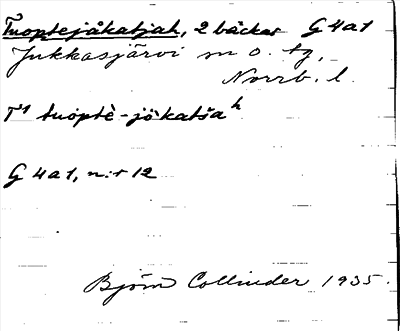 Tuoptejåkatjah, 2 bäckar G 4a1
Jukkasjärvi sn o. tg,
Norrb. l.
T¹ tuoptè-jåkatša h
G 4a1, n:r 12
Björn Collinder 1935.